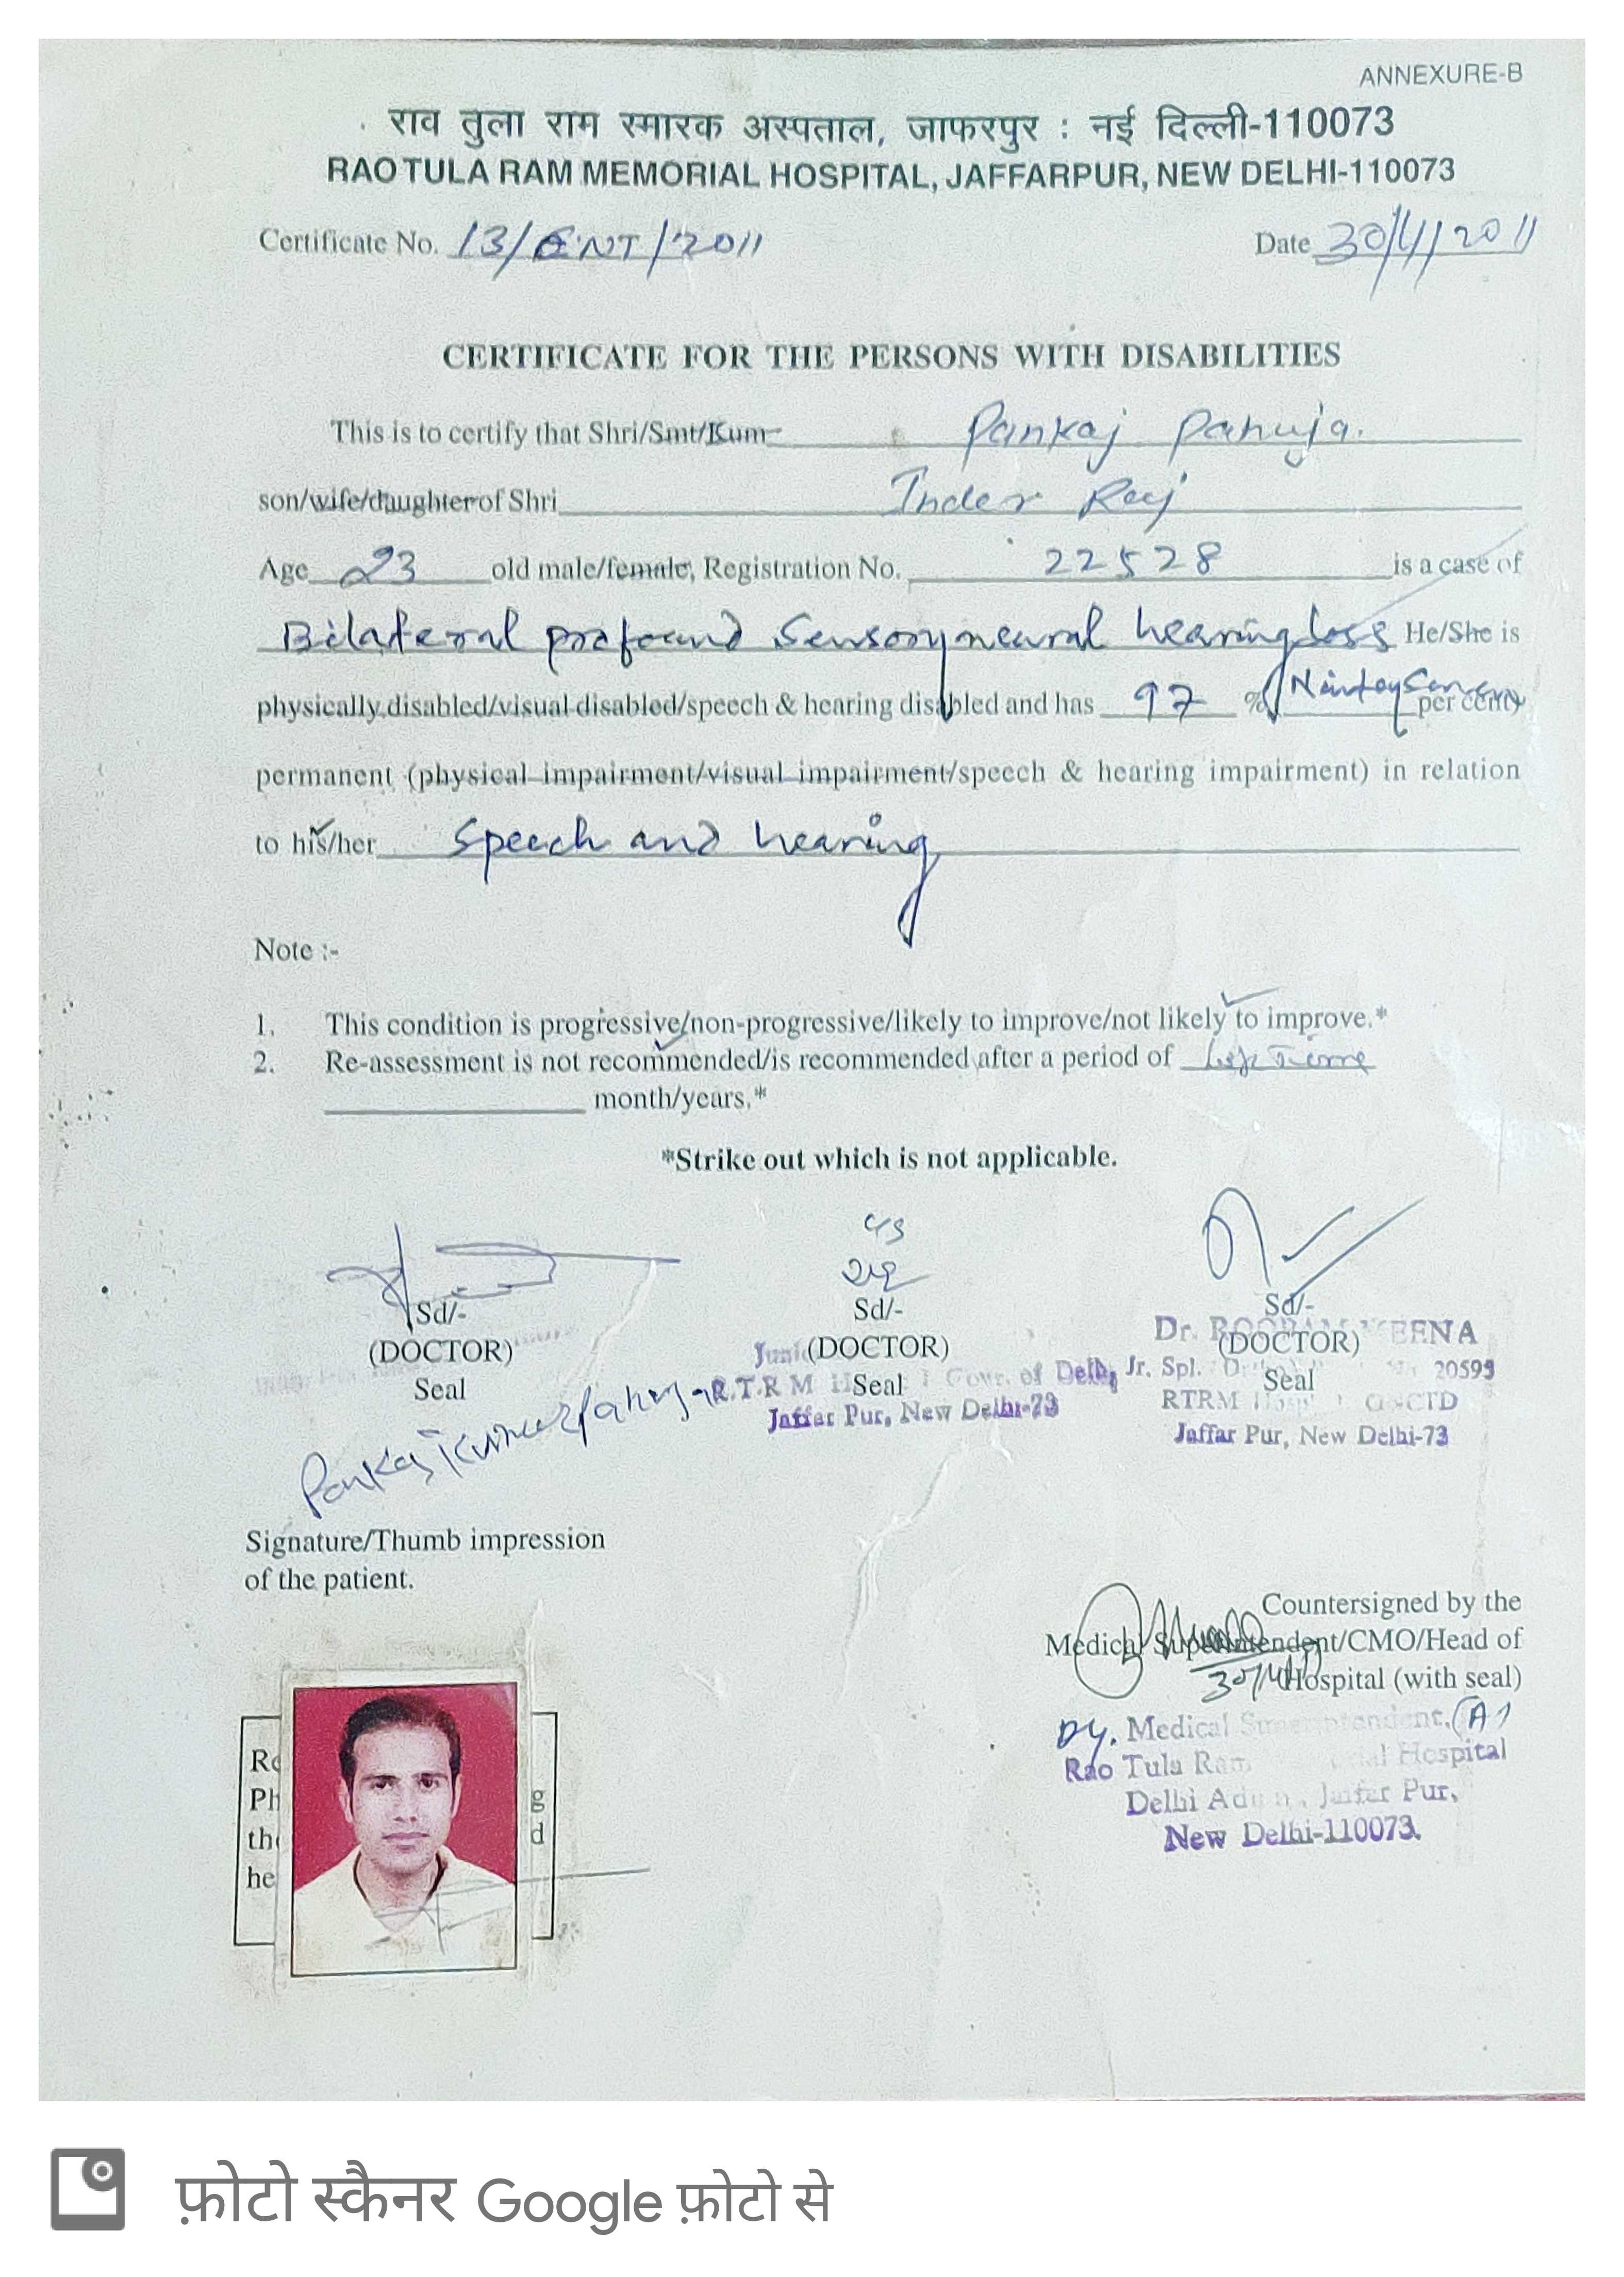 ANNEXURE-B
राव तुला राम स्मारक अस्पताल, जाफरपुर : नई दिल्ली-110073
RAO TULA RAM MEMORIAL HOSPITAL, JAFFARPUR, NEW DELHI-110073
Certificate No. 13/ENT/2011 Date 30/4/2011
CERTIFICATE FOR THE PERSONS WITH DISABILITIES
This is to certify that Shri/Smt/Kum Pankaj Pahuja.
son/wife/daughter of Shri Inder Raj
Age 23 old male/female, Registration No. 22528 is a case of
Bilateral profound Sensoryneural hearing loss He/She is
physically disabled/visual disabled/speech & hearing disabled and has 97 % per cent
permanent (physical impairment/visual impairment/speech & hearing impairment) in relation
to his/her Speech and hearing
Note :-
1. This condition is progressive/non-progressive/likely to improve/not likely to improve.*
2. Re-assessment is not recommended/is recommended after a period of
month/years.*
*Strike out which is not applicable.
Sd/- Sd/- Sd/-
(DOCTOR) (DOCTOR) (DOCTOR)
Seal Seal Seal
Dr. MEENA
Jr. Spl. 20593
R.T.R M Govt. of Delhi
Jaffar Pur, New Delhi-73
RTRM GNCTD
Jaffar Pur, New Delhi-73
Pankaj Kumar Pahuja
Signature/Thumb impression
of the patient.
Countersigned by the
Medical Superintendent/CMO/Head of
30/4/11
Hospital (with seal)
Dy. Medical Superintendent,
Rao Tula Ram Hospital
Delhi Jaffar Pur,
New Delhi-110073.
फ़ोटो स्कैनर Google फ़ोटो से